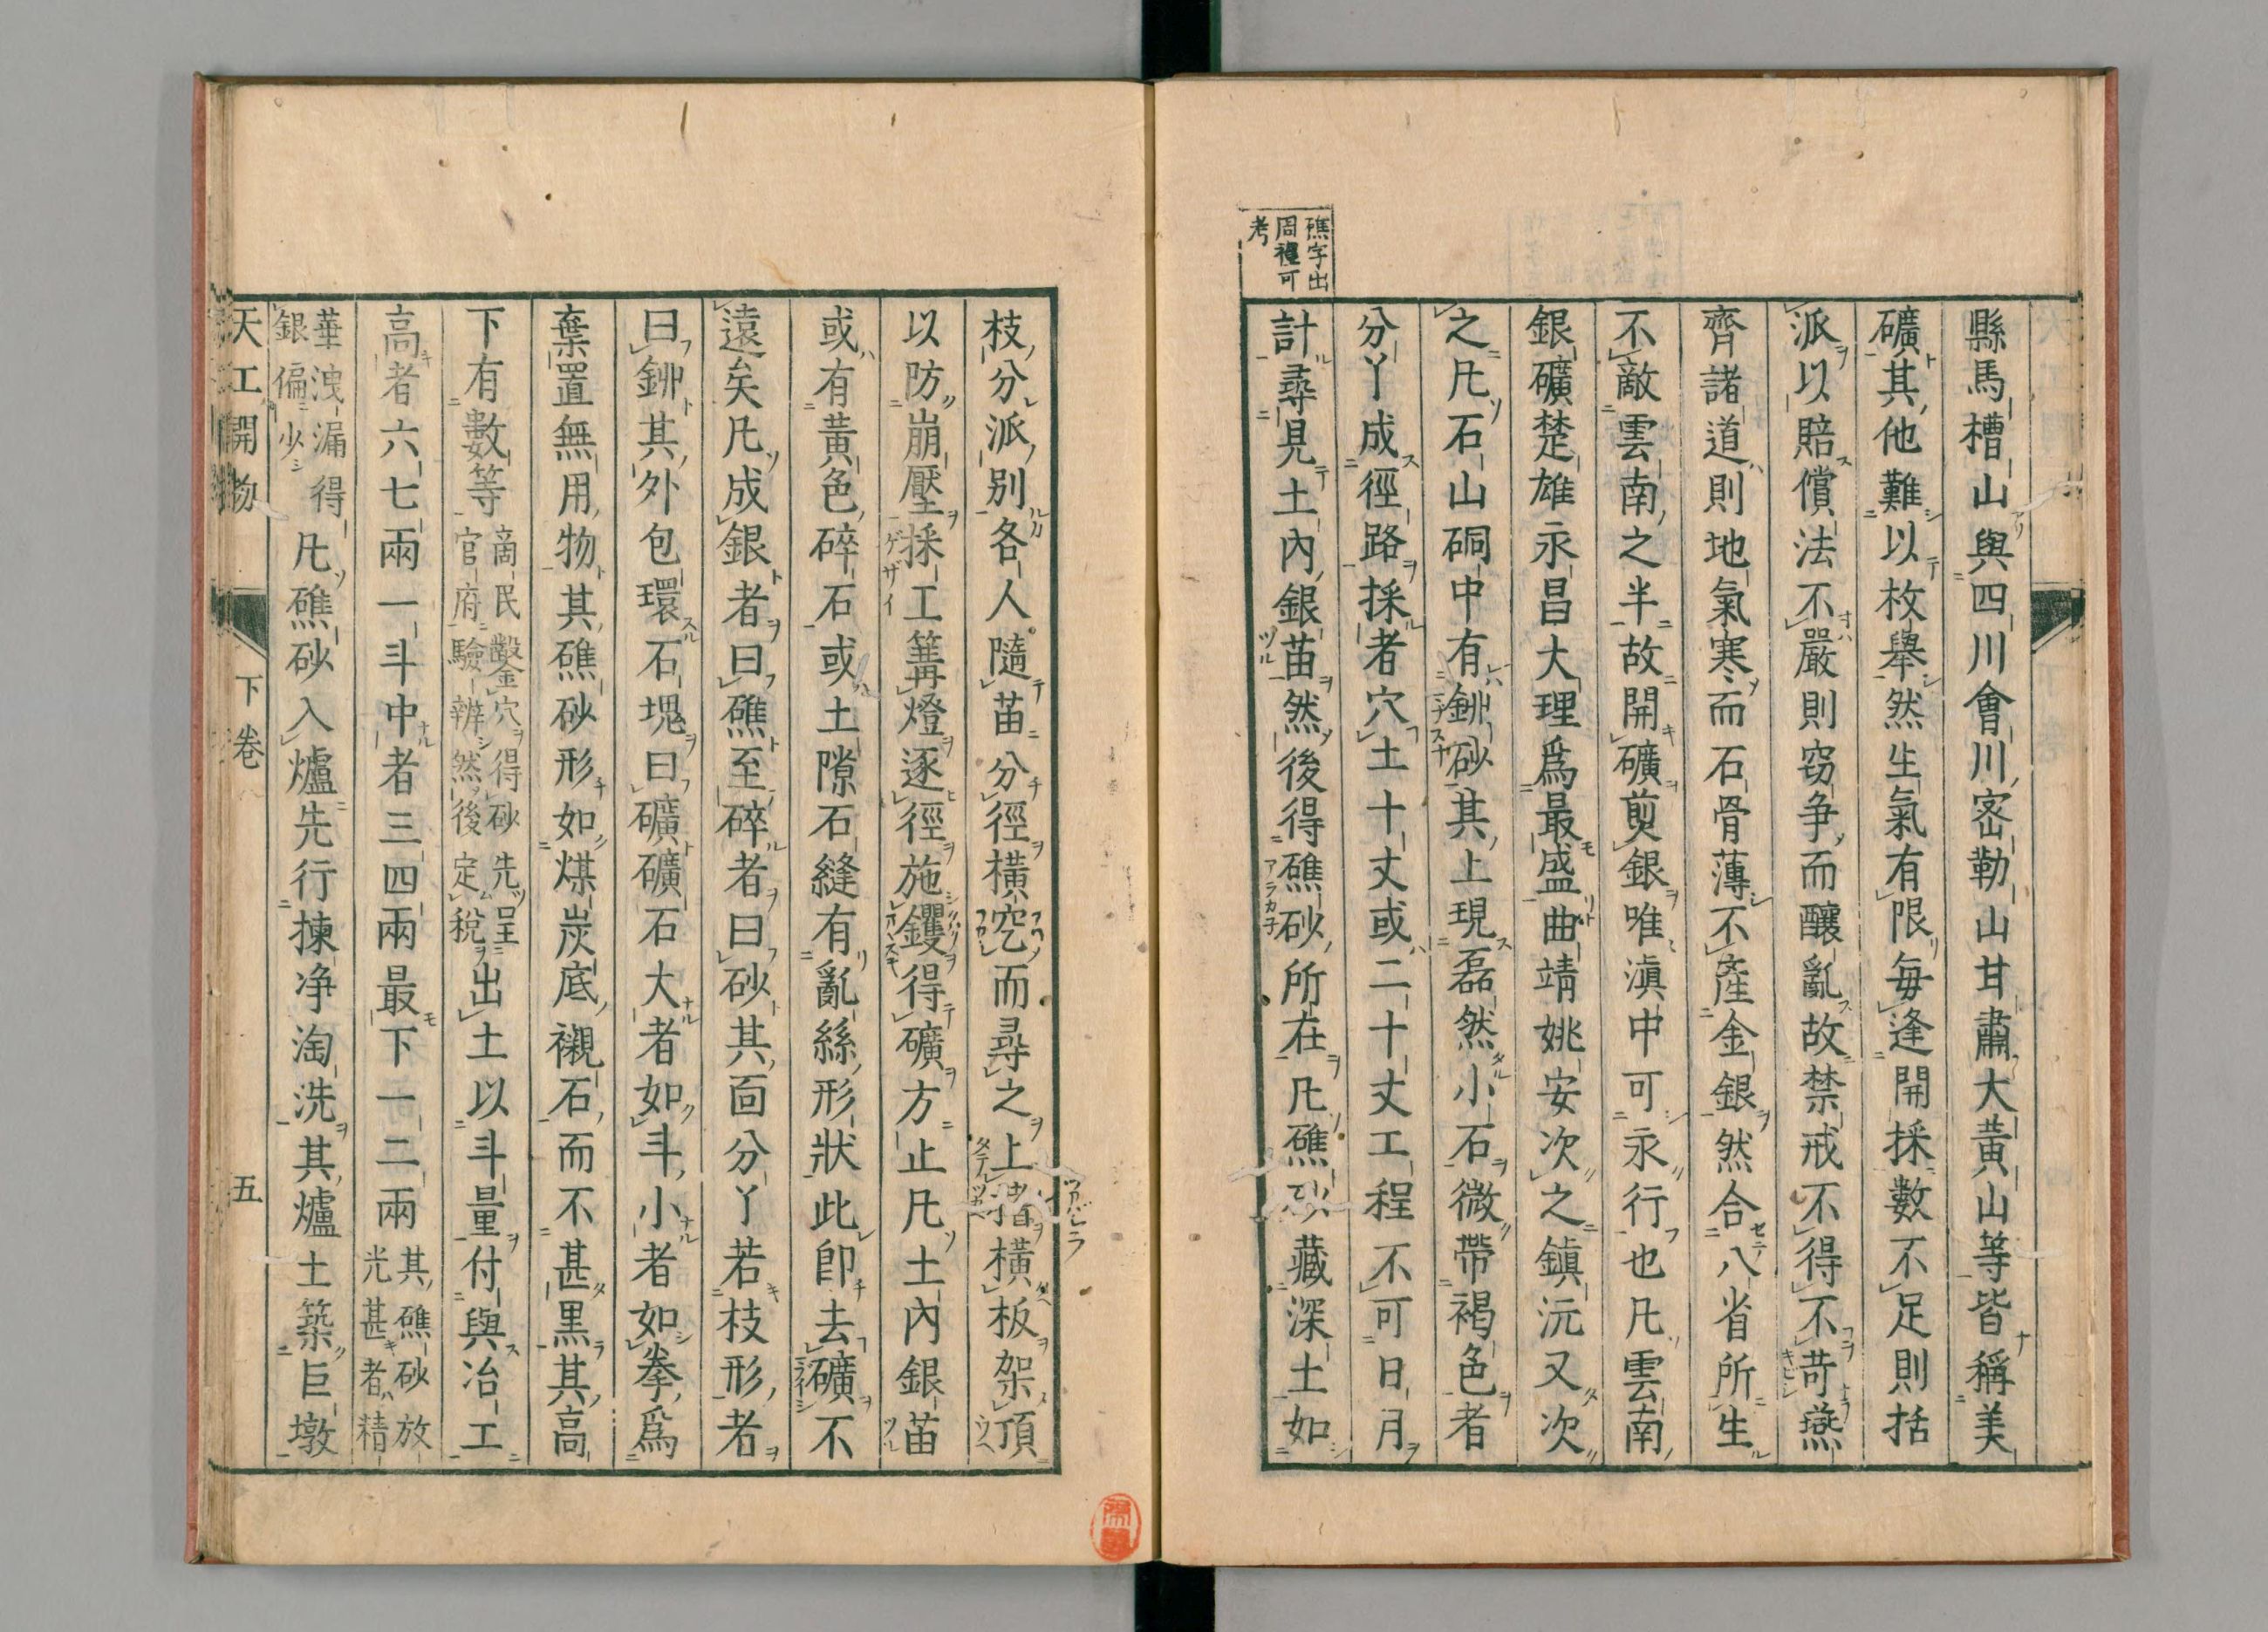 礁字出
周禮可
考
縣馬槽山與四川會川密勒山甘肅大黃山等皆稱美
礦其他難以枚舉然生氣有限每逢開採數不足則括
派以賠償法不嚴則窃爭而釀亂故禁戒不得不苛燕
齊諸道則地氣寒而石骨薄不產金銀然合八省所生
不敵雲南之半故開礦剪銀唯滇中可永行也凡雲南
銀礦楚雄永昌大理爲最盛曲靖姚安次之鎮沅又次
之凡石山硐中有鉚砂其上現磊然小石微帶褐色者
分丫成徑路採者穴土十丈或二十丈工程不可日月
計尋見土內銀苗然後得礁砂所在凡礁砂藏深土如
枝分派別各人隨苗分徑橫穵而尋之上榰橫板架頂
以防崩壓採工篝燈逐徑施钁得礦方止凡土內銀苗
或有黃色碎石或土隙石縫有亂絲形狀此卽去礦不
遠矣凡成銀者曰礁至碎者曰砂其面分丫若枝形者
曰鉚其外包環石塊曰礦礦石大者如斗小者如拳爲
棄置無用物其礁砂形如煤炭底襯石而不甚黑其高
下有數等
商民鑿穴得砂先呈
官府驗辨然後定稅
出土以斗量付與冶工
高者六七兩一斗中者三四兩最下一二兩
其礁砂放
光甚者精
華洩漏得
銀偏少
凡礁砂入爐先行揀净淘洗其爐土築巨墩
天工開物
下卷
五